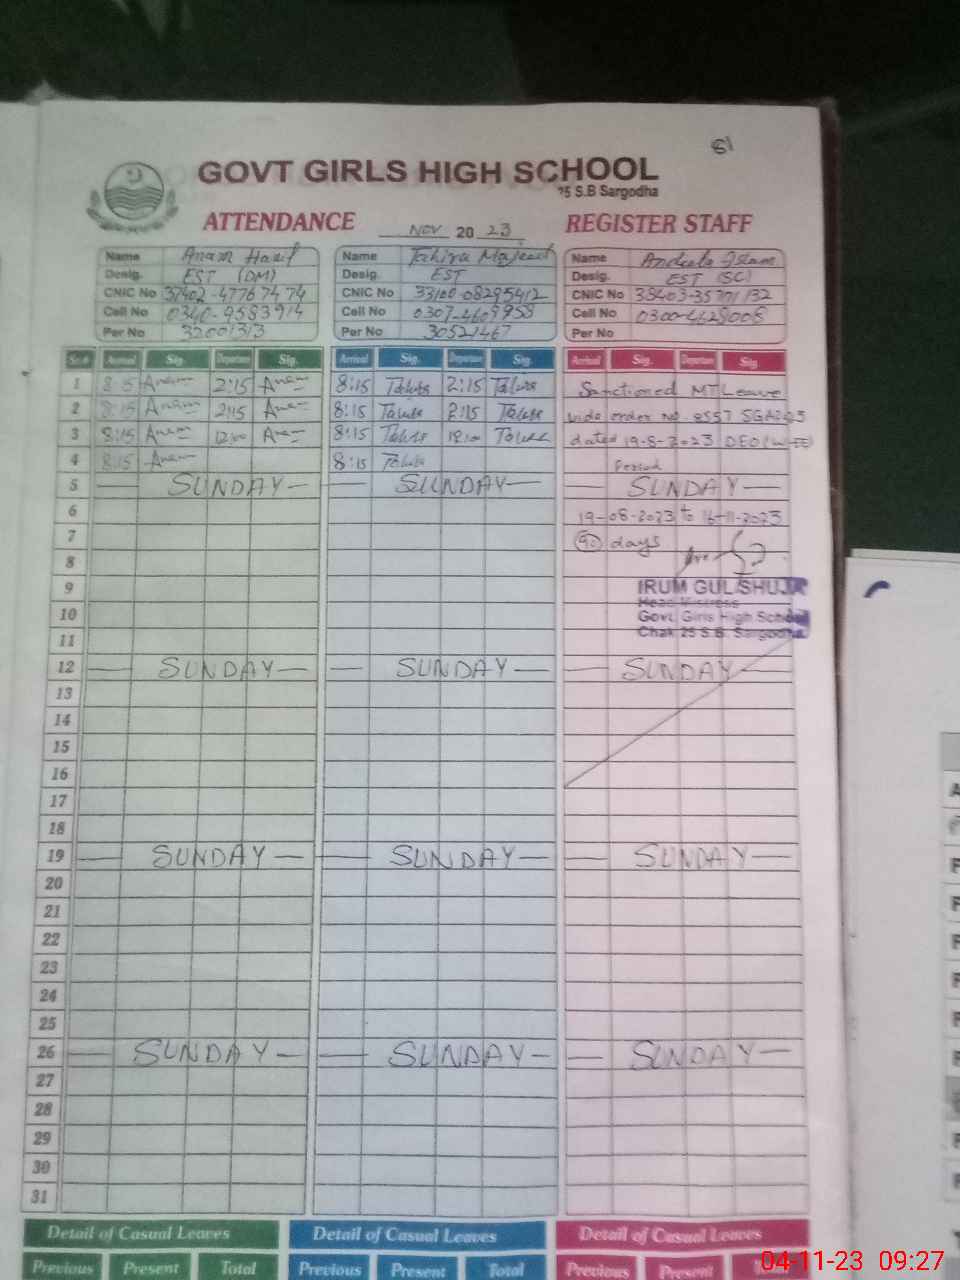 61
GOVT GIRLS HIGH SCHOOL
25 S.B Sargodha
ATTENDANCE NOV 20 23 REGISTER STAFF
Name Anam Hanif Name Tahira Majeed Name Andeela Islam
Desig. EST (DM) Desig. EST Desig. EST (SC)
CNIC No CNIC No CNIC No
Cell No 0340-9583914 Cell No 0307-4609958 Cell No 0300-4628008
Per No Per No 30521467 Per No
Sr.# Arrival Sig. Departure Sig. Arrival Sig. Departure Sig. Arrival Sig. Departure Sig.
1 8:15 Anam 2:15 Anam 8:15 Tahira 2:15 Tahira Sanctioned MTLeave
2 8:15 Anam 2:15 Anam 8:15 Tahira 2:15 Tahira vide order no
3 8:15 Anam 12:00 Anam 8:15 Tahira 12:00 Tahira dated 19-8-2023 DEO(W-EE)
4 8:15 Anam 8:15 Tahira Period
5 SUNDAY SUNDAY SUNDAY
6 19-08-2023 to 16-11-2023
7 90 days
8
9 IRUM GUL SHUJA
Head Mistress
10 Govt. Girls High School
11 Chak 25 S.B. Sargodha.
12 SUNDAY SUNDAY SUNDAY
13
14
15
16
17
18
19 SUNDAY SUNDAY SUNDAY
20
21
22
23
24
25
26 SUNDAY SUNDAY SUNDAY
27
28
29
30
31
Detail of Casual Leaves Detail of Casual Leaves Detail of Casual Leaves
Previous Present Total Previous Present Total Previous Present Total
04-11-23 09:27